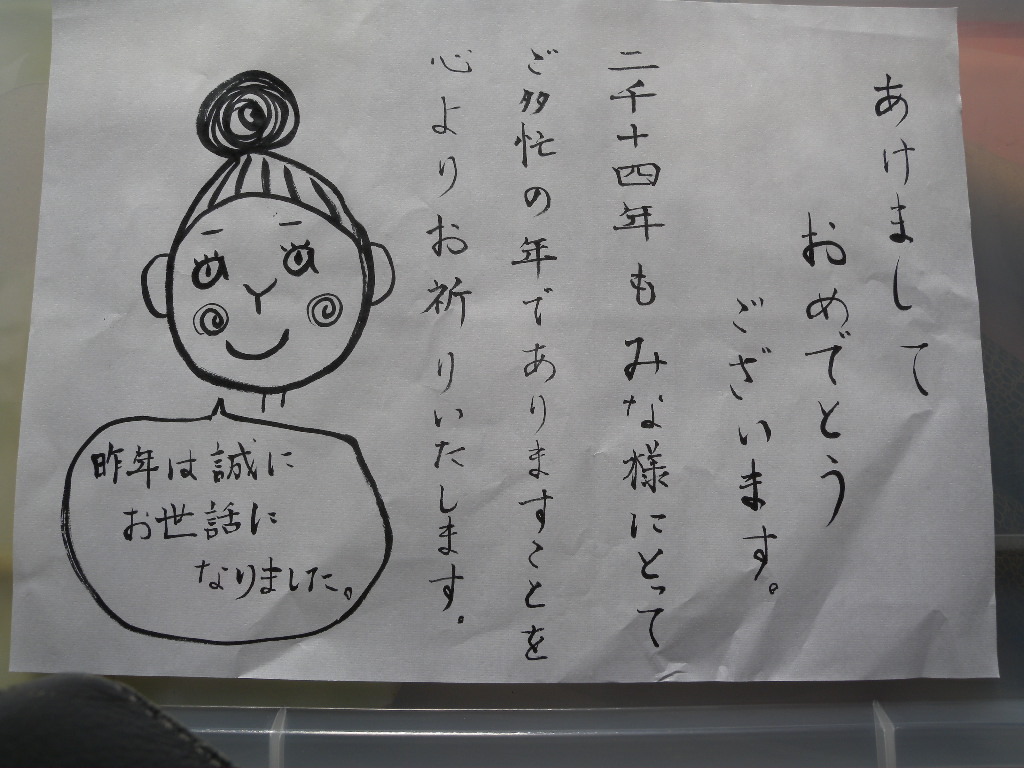 あけまして
おめでとう
ございます。
二千十四年もみな様にとって
ご多忙の年でありますことを
心よりお祈りいたします。
昨年は誠に
お世話に
なりました。